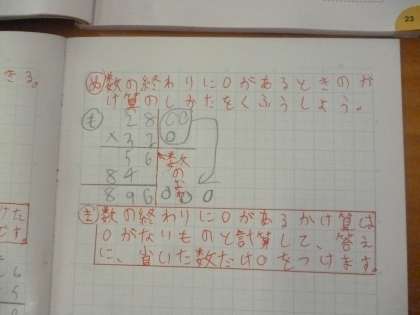 23
きる。
め 数の終わりに0があるときのか
け算のしかたをくふうしよう。
も 28 00
×32 0
56
84
896000
数
の
ま 数の終わりに0があるかけ算は
0がないものと計算して、答え
に、省いた数だけ0をつけます。
けた
です。
6
5